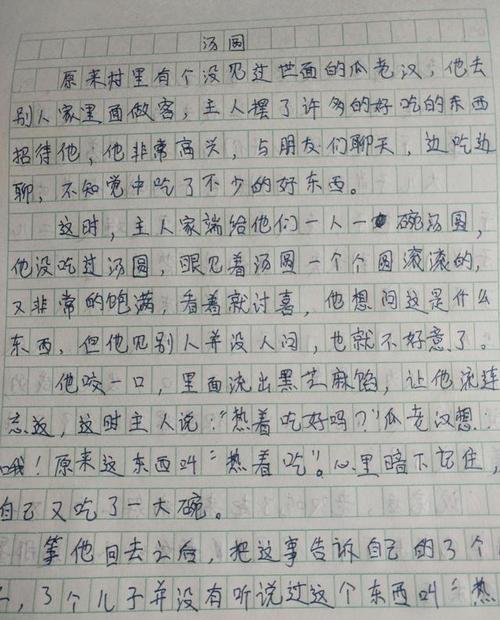 汤圆
原来村里有个没见过世面的瓜老汉，他去
别人家里面做客，主人摆了许多的好吃的东西
招待他，他非常高兴，与朋友们聊天，边吃边
聊，不知觉中吃了不少的好东西。
这时，主人家端给他们一人一碗汤圆，
他没吃过汤圆，眼见着汤圆一个个圆滚滚的，
又非常的饱满，看着就讨喜，他想问这是什么
东西，但他见别人并没人问，也就不好意了。
他咬一口，里面流出黑芝麻馅，让他流连
忘返，这时主人说："热着吃好吗？"瓜老汉想：
哦！原来这东西叫"热着吃"。心里暗下记住，
自己又吃了一大碗。
等他回去之后，把这事告诉自己的3个
，3个儿子并没有听说过这个东西叫 热